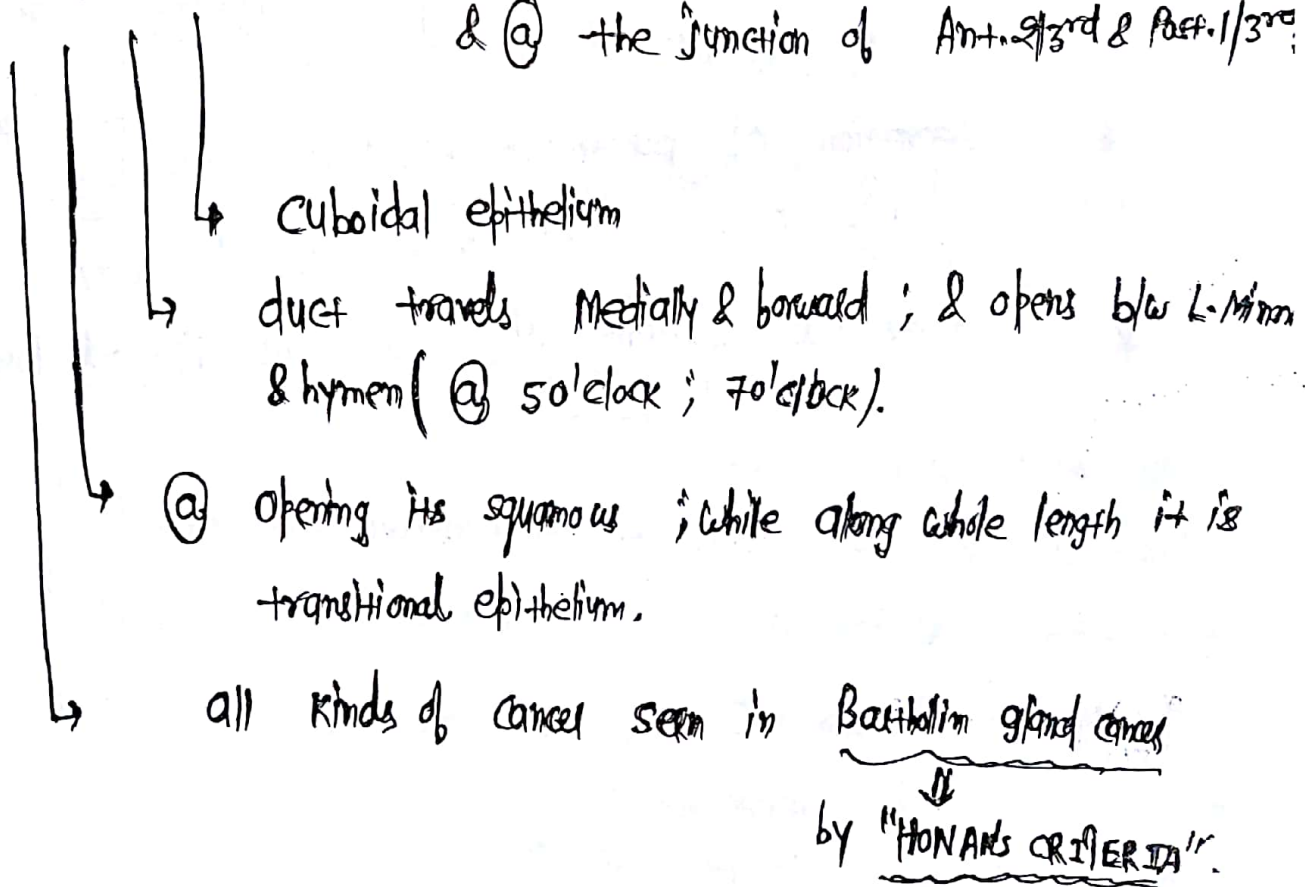 & @ the junction of Ant. 2/3rd & Post. 1/3rd
cuboidal epithelium
duct travels Medially & forward ; & opens b/w L. Minora
& hymen ( @ 5 o'clock ; 7 o'clock ).
@ opening its squamous ; while along whole length it is
transitional epithelium.
all kinds of cancer seen in Bartholin gland cancer
by "HONAN'S CRITERIA".